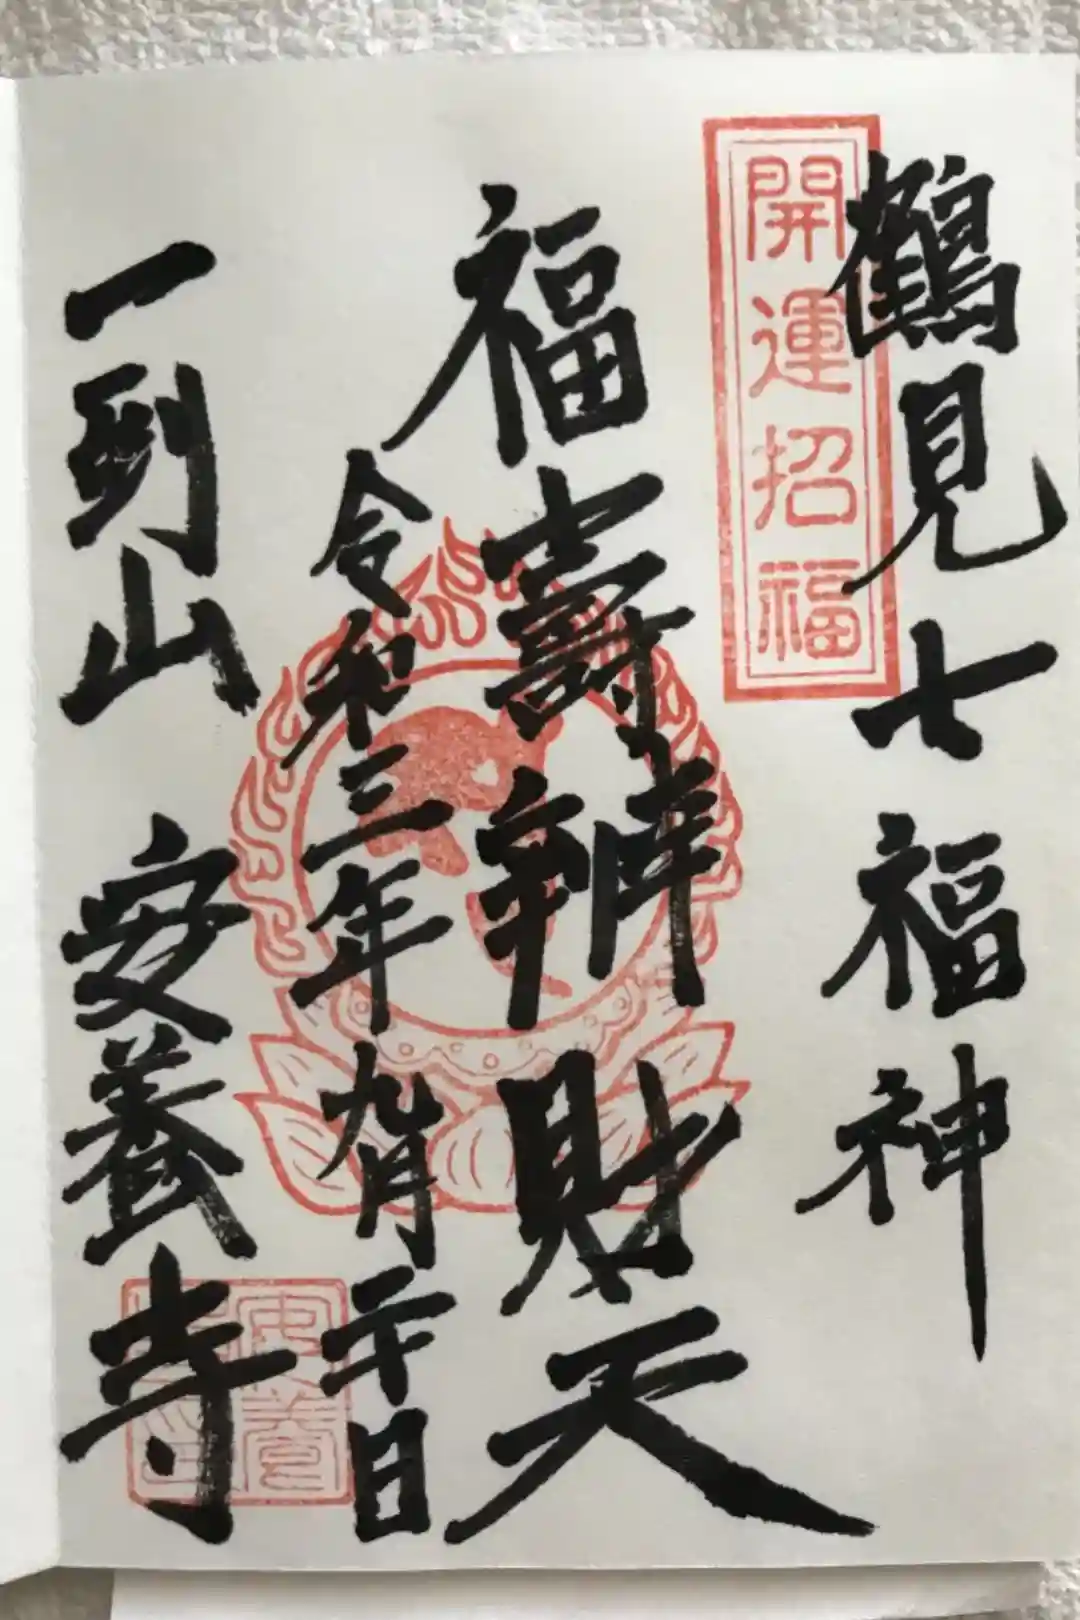 鶴見七福神
開運招福
福壽辨財天
令和三年九月二十日
一到山 安養寺